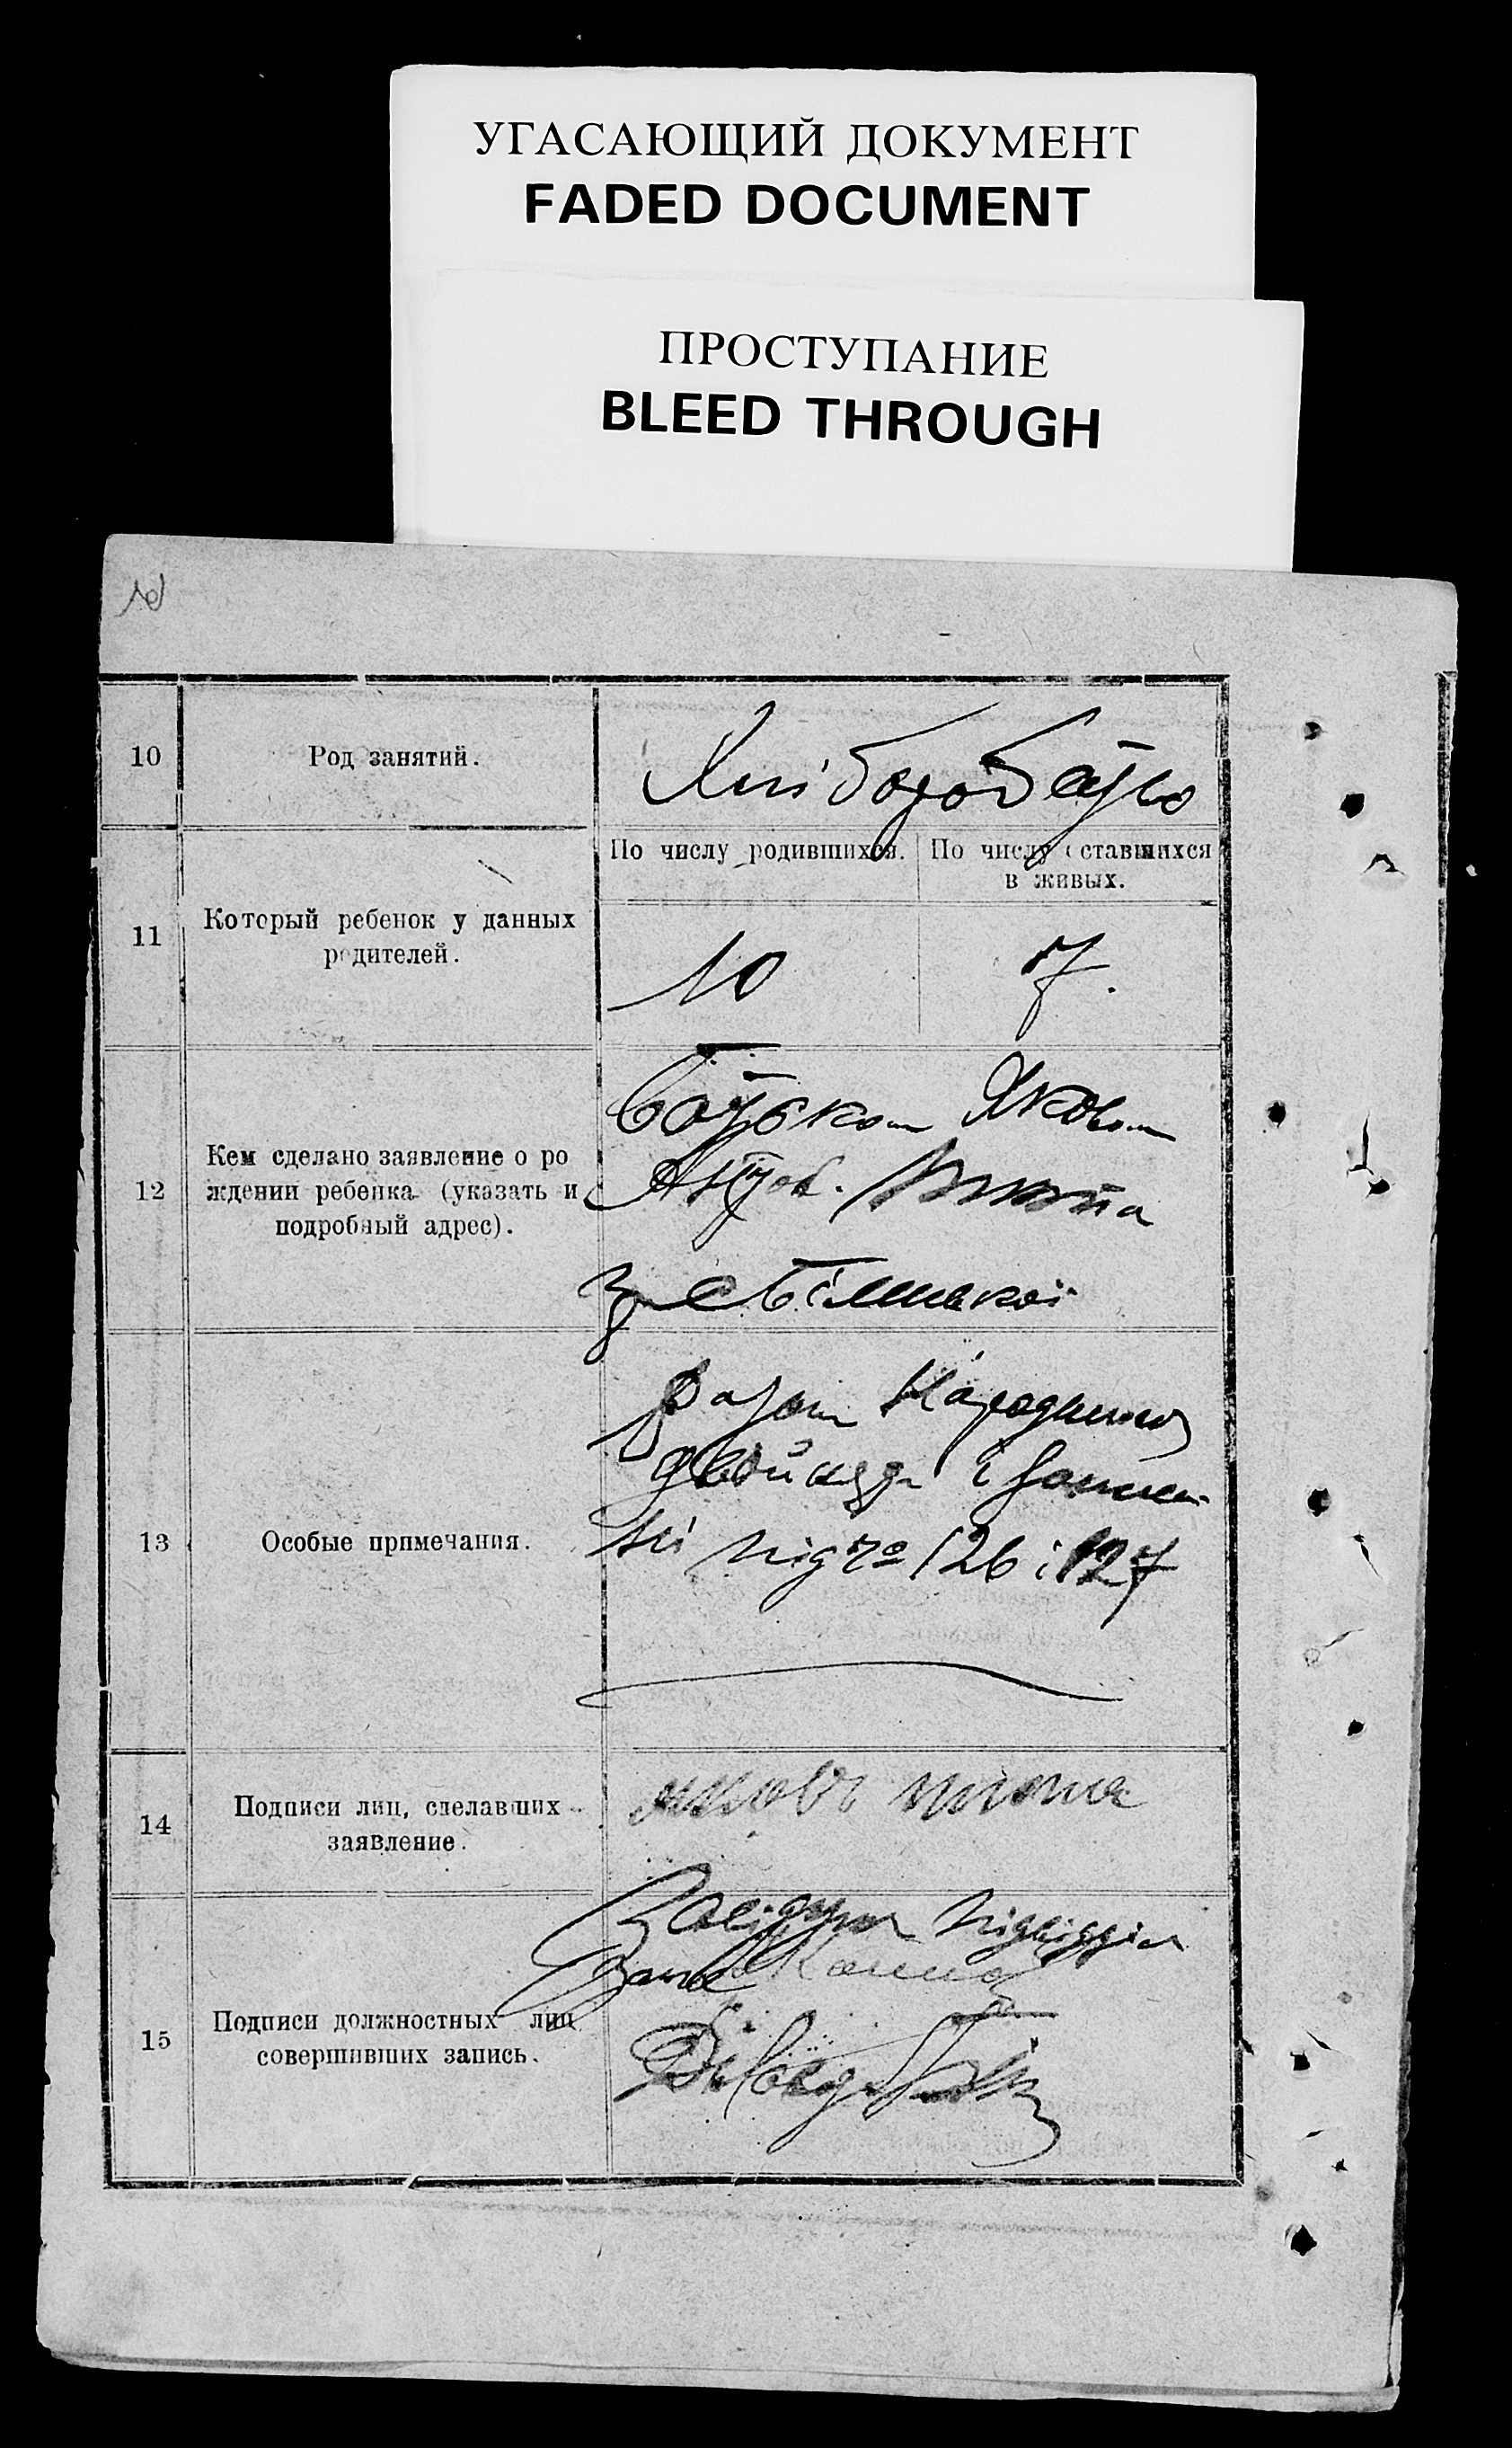 УГАСАЮЩИЙ ДОКУМЕНТ
FADED DOCUMENT
ПРОСТУПАНИЕ
BLEED THROUGH
10
Род занятий.
Хліборобство
11
Который ребенок у данных
родителей.
По числу родившихся.
По числу оставшихся
в живых.
10
7.
12
Кем сделано заявление о ро
ждении ребенка (указать и
подробный адрес).
Батьком Яковом
з
13
Особые примечания.
Разом народились
двойнядя і записа
ні під № 126 і 127
14
Подписи лиц, сделавших
заявление.
15
Подписи должностных лиц
совершивших запись.
Завідуюч підвідділ
Діловод